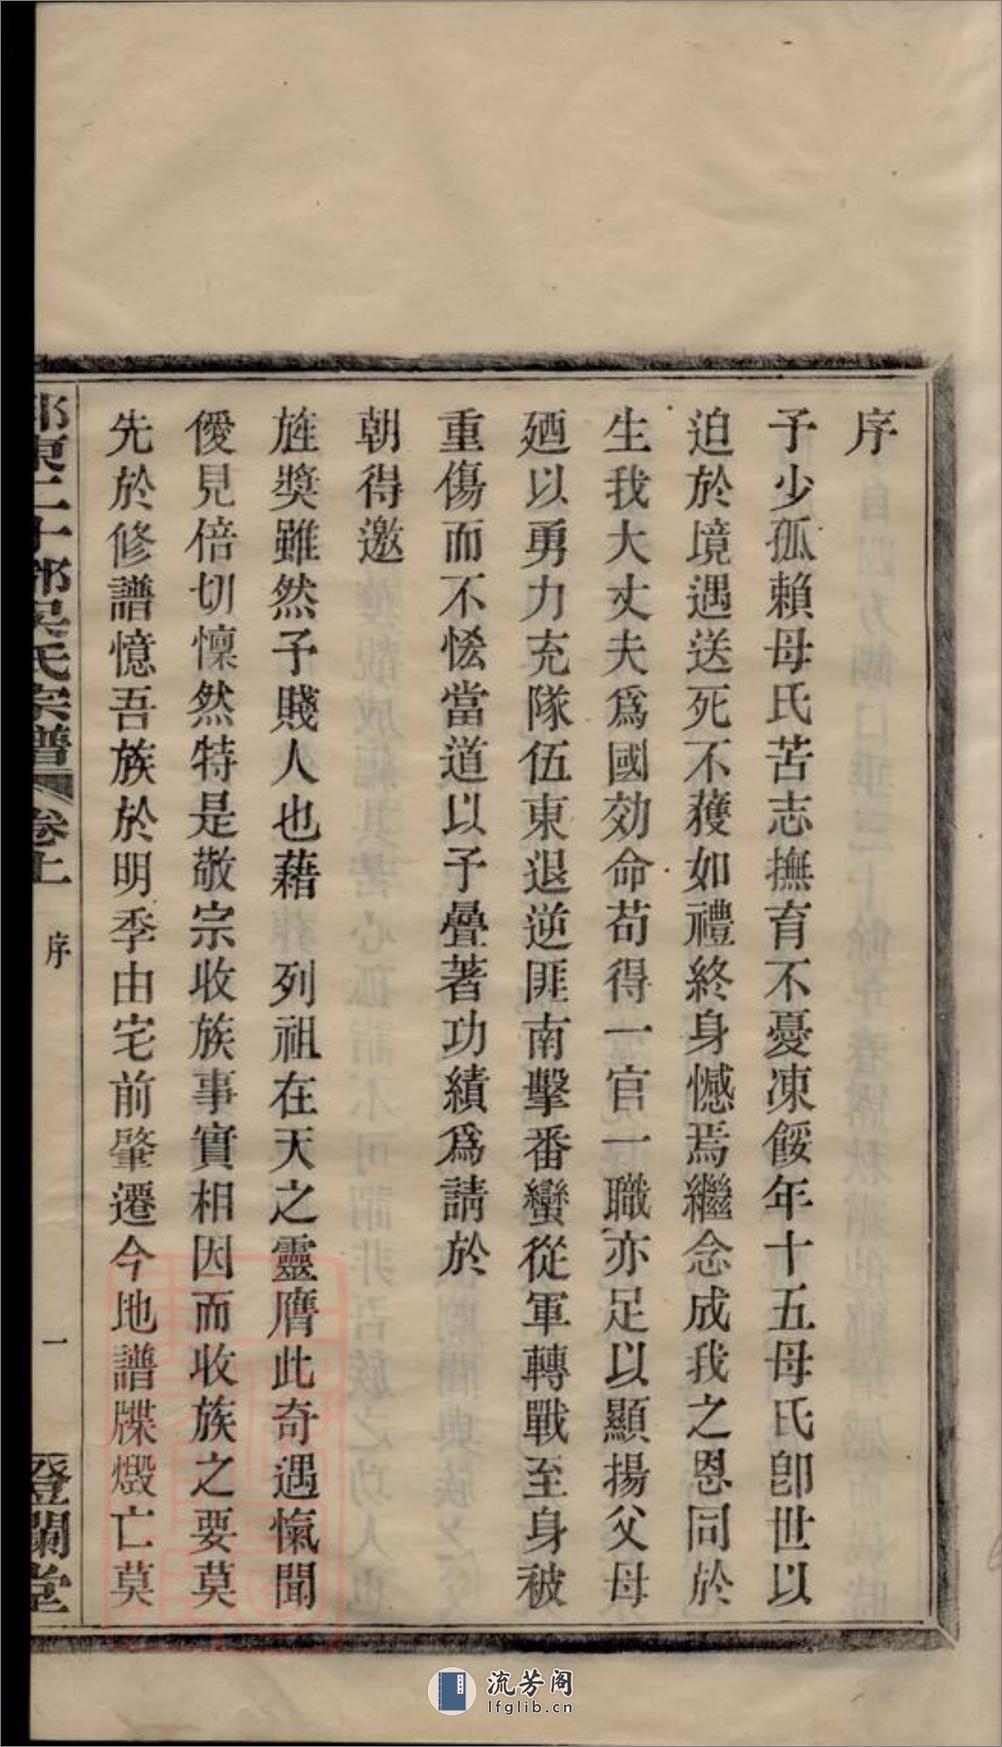 序
予少孤賴母氏苦志撫育不憂凍餒年十五母氏卽世以
迫於境遇送死不獲如禮終身憾焉繼念成我之恩同於
生我大丈夫爲國効命苟得一官一職亦足以顯揚父母
廼以勇力充隊伍東退逆匪南擊番蠻從軍轉戰至身被
重傷而不恡當道以予疊著功績爲請於
朝得邀
旌獎雖然予賤人也藉 列祖在天之靈膺此奇遇愾聞
僾見倍切懍然特是敬宗收族事實相因而收族之要莫
先於修譜憶吾族於明季由宅前肇遷今地譜牒燬亡莫
東二十都吳氏宗譜 卷上 序 一 登閬堂
流芳阁
lfglib.cn